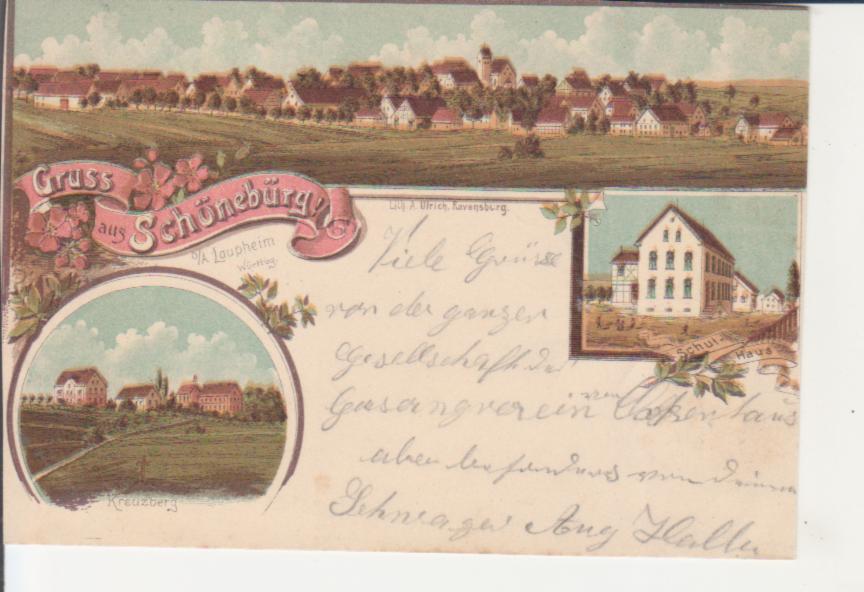 Gruss
aus Schönebürg!
O/A Laupheim
Württbg.
Lith. A. Ulrich, Ravensburg.
Schul-
Haus
Kreuzberg
Viele Grüsse
von der ganzen
Gesellschaft des
Gesangverein von
aber besonders von deinem
Schwager Aug Haller